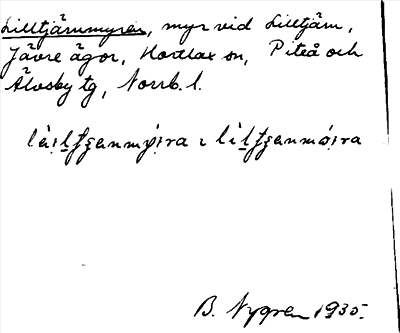 Lilltjärnmyren, myr vid Lilltjärn,
Jävre ägor, Hortlax sn, Piteå och
Älvsby tg, Norrb. l.
B. Nygren 1935.